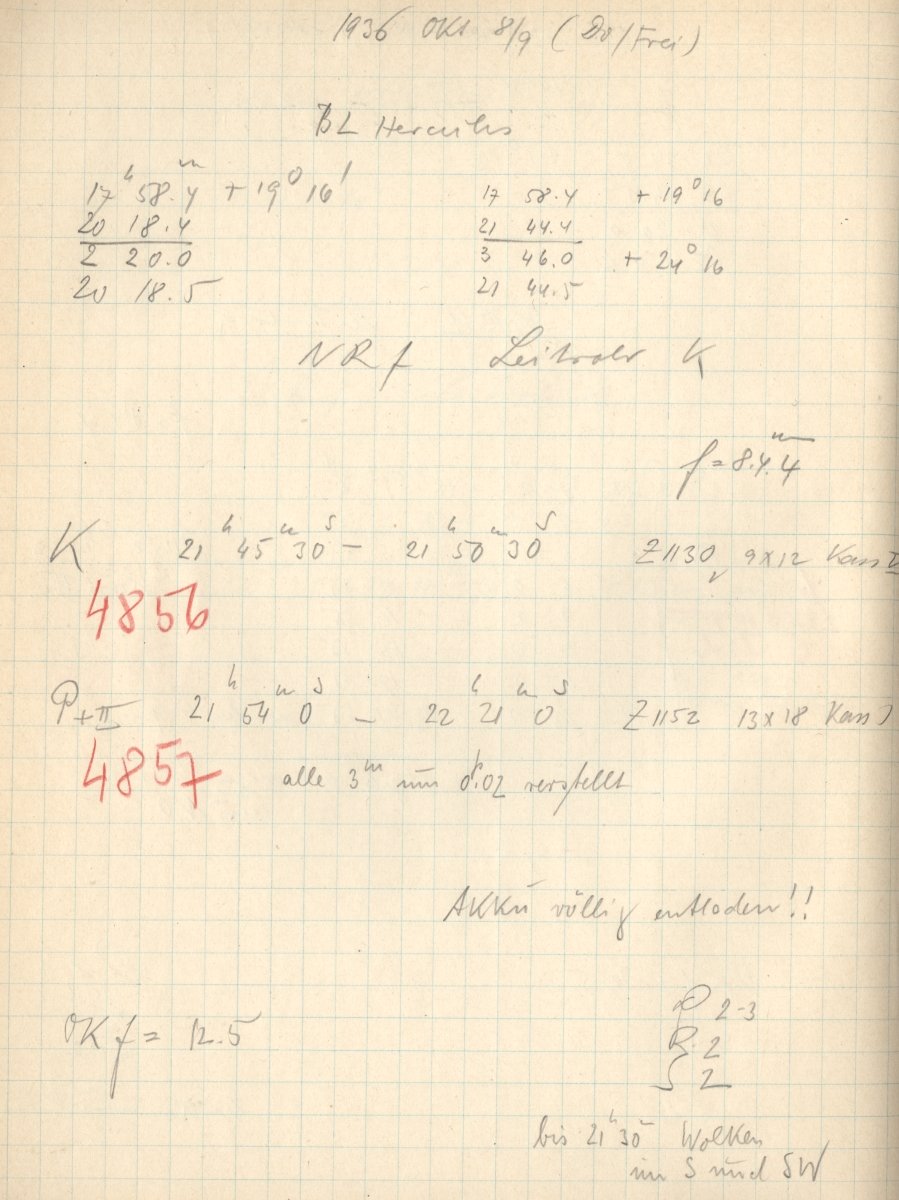 1936 Okt 8/9 (Do/Frei)
BL Herculis
17ʰ 58.4ᵐ + 19° 16'
20 18.4
2 20.0
20 18.5
17 58.4 + 19° 16
21 44.4
3 46.0 + 24° 16
21 44.5
NR f Leitrohr K
f = 8.4.4
K 21ʰ 45ᵐ 30ˢ – 21ʰ 50ᵐ 30ˢ Z1130, 9x12 Kass
4856
P+II 21ʰ 54ᵐ 0ˢ – 22ʰ 21ᵐ 0ˢ Z1152 13x18 Kass
4857 alle 3ᵐ um 0.02 verstellt
AKKU völlig entladen!!
OK f = 12.5
P 2-3
R 2
S 2
bis 21ʰ 30 Wolken
im S und SW